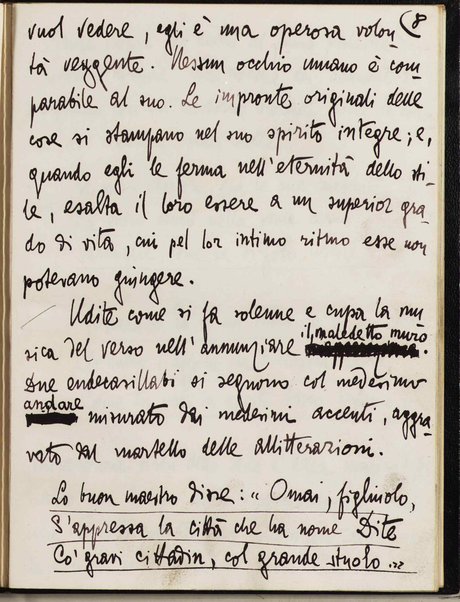 8
vuol vedere, egli è una operosa volon
tà veggente. Nessun occhio umano è com-
parabile al suo. Le impronte originali delle
cose si stampano nel suo spirito integre; e,
quando egli le ferma nell'eternità dello sti-
le, esalta il loro essere a un superior gra-
do di vita, cui pel lor intimo ritmo esse non
potevano giungere.
Udite come si fa solenne e cupa la mu
sica del verso nell'annunziare il maledetto muro.
Due endecasillabi si seguono col medesimo
andare misurato dai medesimi accenti, aggra-
vato dal martello delle allitterazioni.
Lo buon maestro disse: "Omai, figliuolo,
S'appressa la città che ha nome Dite
Co' gravi cittadin, col grande stuolo..."